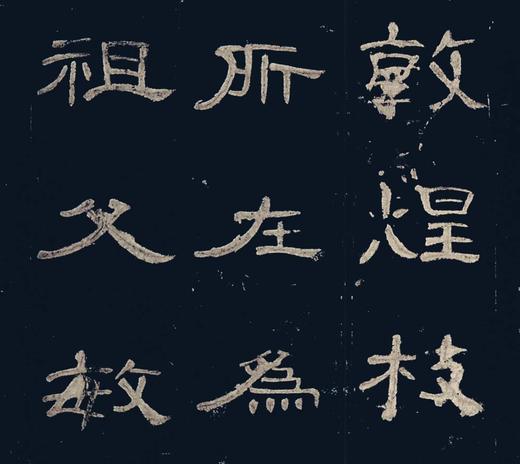 敦煌枝
所在為
祖父敏